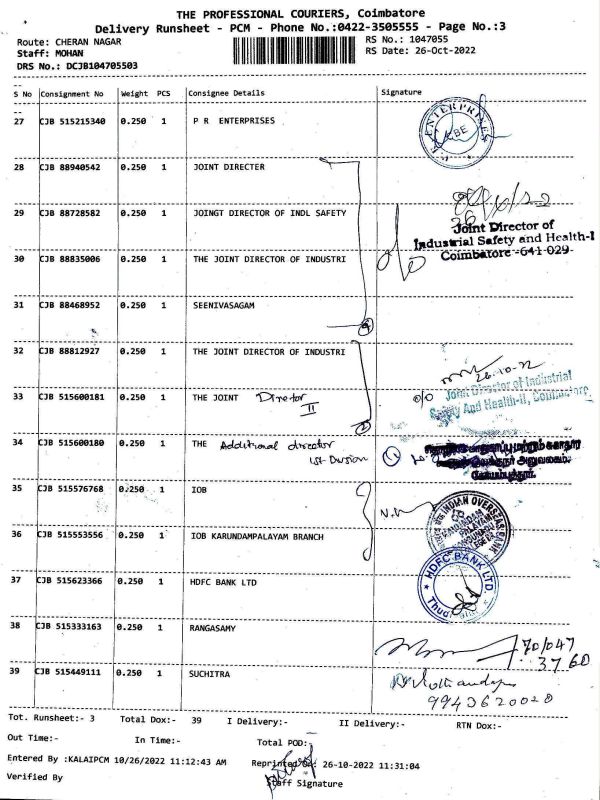 THE PROFESSIONAL COURIERS, Coimbatore
Delivery Runsheet - PCM - Phone No.:0422-3505555 - Page No.:3
Route: CHERAN NAGAR
RS No.: 1047055
Staff: MOHAN
RS Date: 26-Oct-2022
DRS No.: DCJB104705503
S No Consignment No Weight PCS Consignee Details Signature
27 CJB 515215340 0.250 1 P R ENTERPRISES
ENTERPRISES
CBE
28 CJB 88940542 0.250 1 JOINT DIRECTER
29 CJB 88728582 0.250 1 JOINGT DIRECTOR OF INDL SAFETY
Joint Director of
Industrial Safety and Health-I
Coimbatore -641 029-
30 CJB 88835006 0.250 1 THE JOINT DIRECTOR OF INDUSTRI
31 CJB 88468952 0.250 1 SEENIVASAGAM
32 CJB 88812927 0.250 1 THE JOINT DIRECTOR OF INDUSTRI
26-10-22
33 CJB 515600181 0.250 1 THE JOINT Director II
Joint Director of Industrial
Safety And Health-II, Coimbatore
34 CJB 515600180 0.250 1 THE Additional director
1st Division
35 CJB 515576768 0.250 1 IOB
INDIAN OVERSEAS BANK
36 CJB 515553556 0.250 1 IOB KARUNDAMPALAYAM BRANCH
37 CJB 515623366 0.250 1 HDFC BANK LTD
HDFC BANK LTD.
38 CJB 515333163 0.250 1 RANGASAMY
39 CJB 515449111 0.250 1 SUCHITRA
9943620020
Tot. Runsheet:- 3 Total Dox:- 39 I Delivery:- II Delivery:- RTN Dox:-
Out Time:- In Time:- Total POD:
Entered By :KALAIPCM 10/26/2022 11:12:43 AM Reprinted On: 26-10-2022 11:31:04
Verified By
Staff Signature